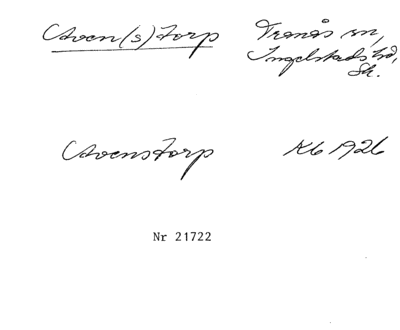 Aven(s)torp Tranås sn,
Ingelstads hd,
Sk.
Avenstorp Kb 1926
Nr 21722